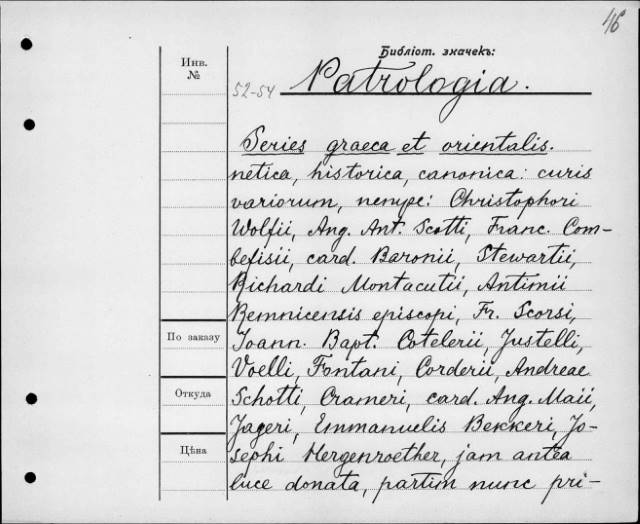 46
Библіот. значекъ:
Инв.
№
52-54
Patrologia.
Series graeca et orientalis.
netica, historica, canonica: curis
variorum, nempe: Christophori
Wolfii, Ang. Ant. Scotti, Franc. Com-
befisii, card. Baronii, Stewartii,
Richardi Montacutii, Antimii
Remnicensis episcopi, Fr. Scorsi,
По заказу
Joann. Bapt. Cotelerii, Justelli,
Voelli, Fontani, Corderii, Andreae
Откуда
Schotti, Crameri, card. Ang. Maii,
Jageri, Emmanuelis Bekkeri, Jo-
Цѣна
sephi Hergenroether, jam antea
luce donata, partim nunc pri-